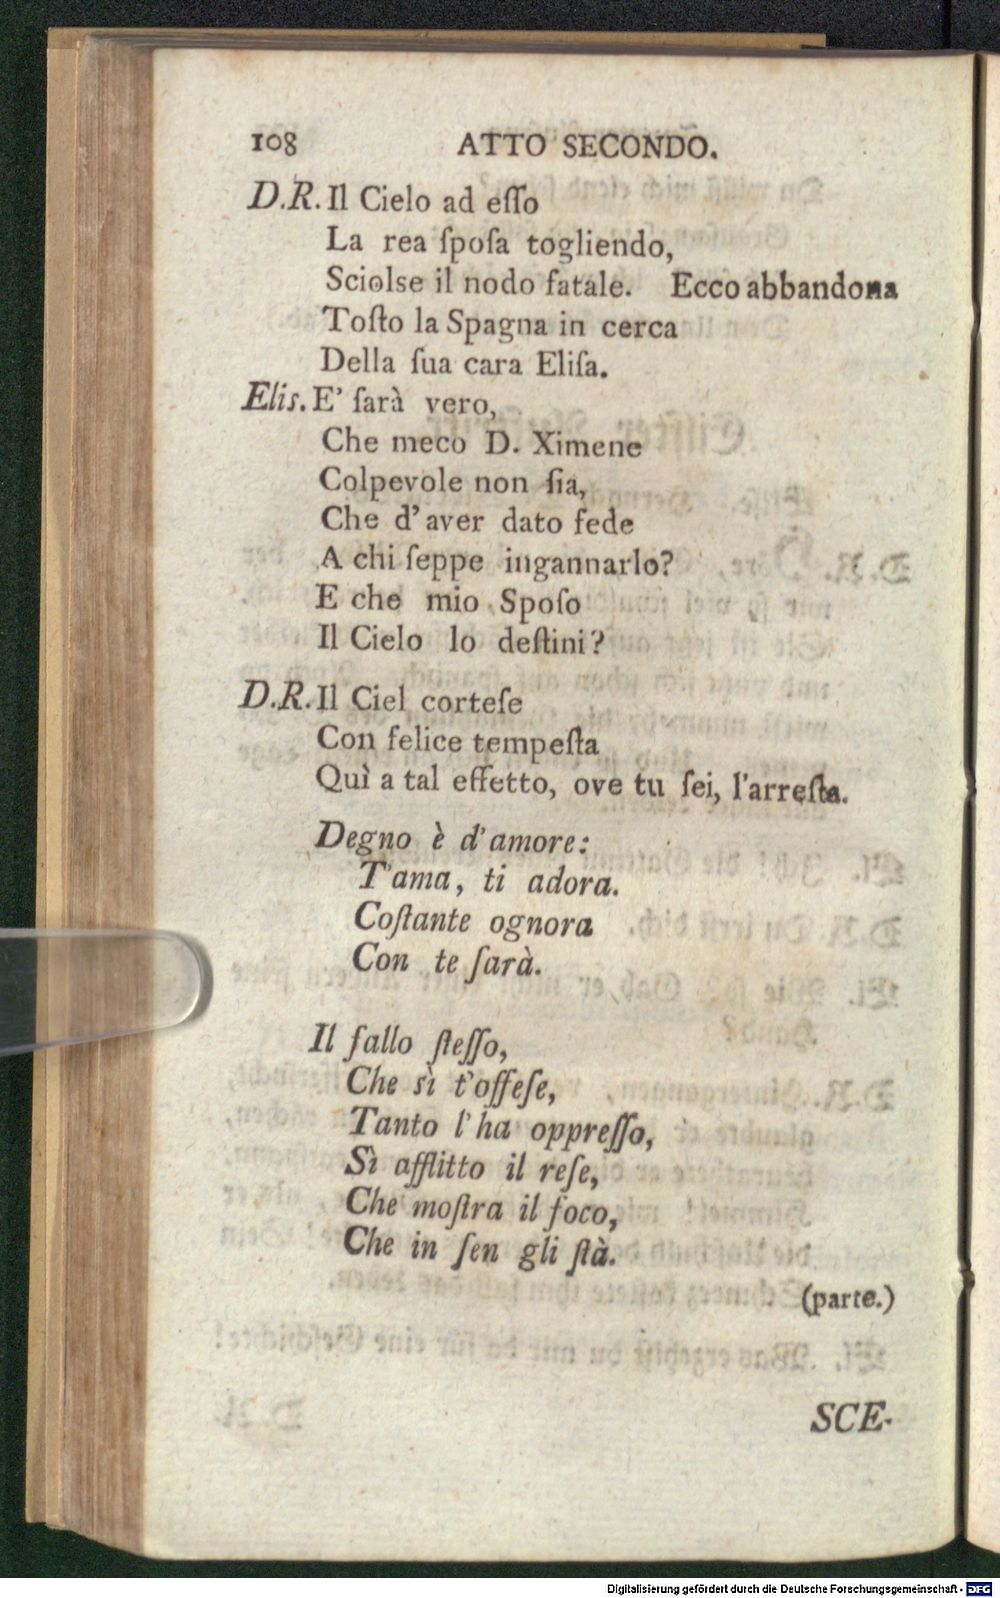 108 ATTO SECONDO.
D.R. Il Cielo ad eſſo
La rea ſpoſa togliendo,
Sciolse il nodo fatale. Ecco abbandona
Toſto la Spagna in cerca
Della ſua cara Eliſa.
Elis. E' ſarà vero,
Che meco D. Ximene
Colpevole non ſia,
Che d'aver dato fede
A chi ſeppe ingannarlo?
E che mio Spoſo
Il Cielo lo deſtini?
D.R. Il Ciel corteſe
Con felice tempeſta
Quì a tal effetto, ove tu ſei, l'arreſta.
Degno è d'amore:
T'ama, ti adora.
Coſtante ognora
Con te ſarà.
Il fallo ſteſſo,
Che sì t'offeſe,
Tanto l'ha oppreſſo,
Sì afflitto il reſe,
Che moſtra il foco,
Che in ſen gli ſtà.
(parte.)
SCE-
Digitalisierung gefördert durch die Deutsche Forschungsgemeinschaft - DFG